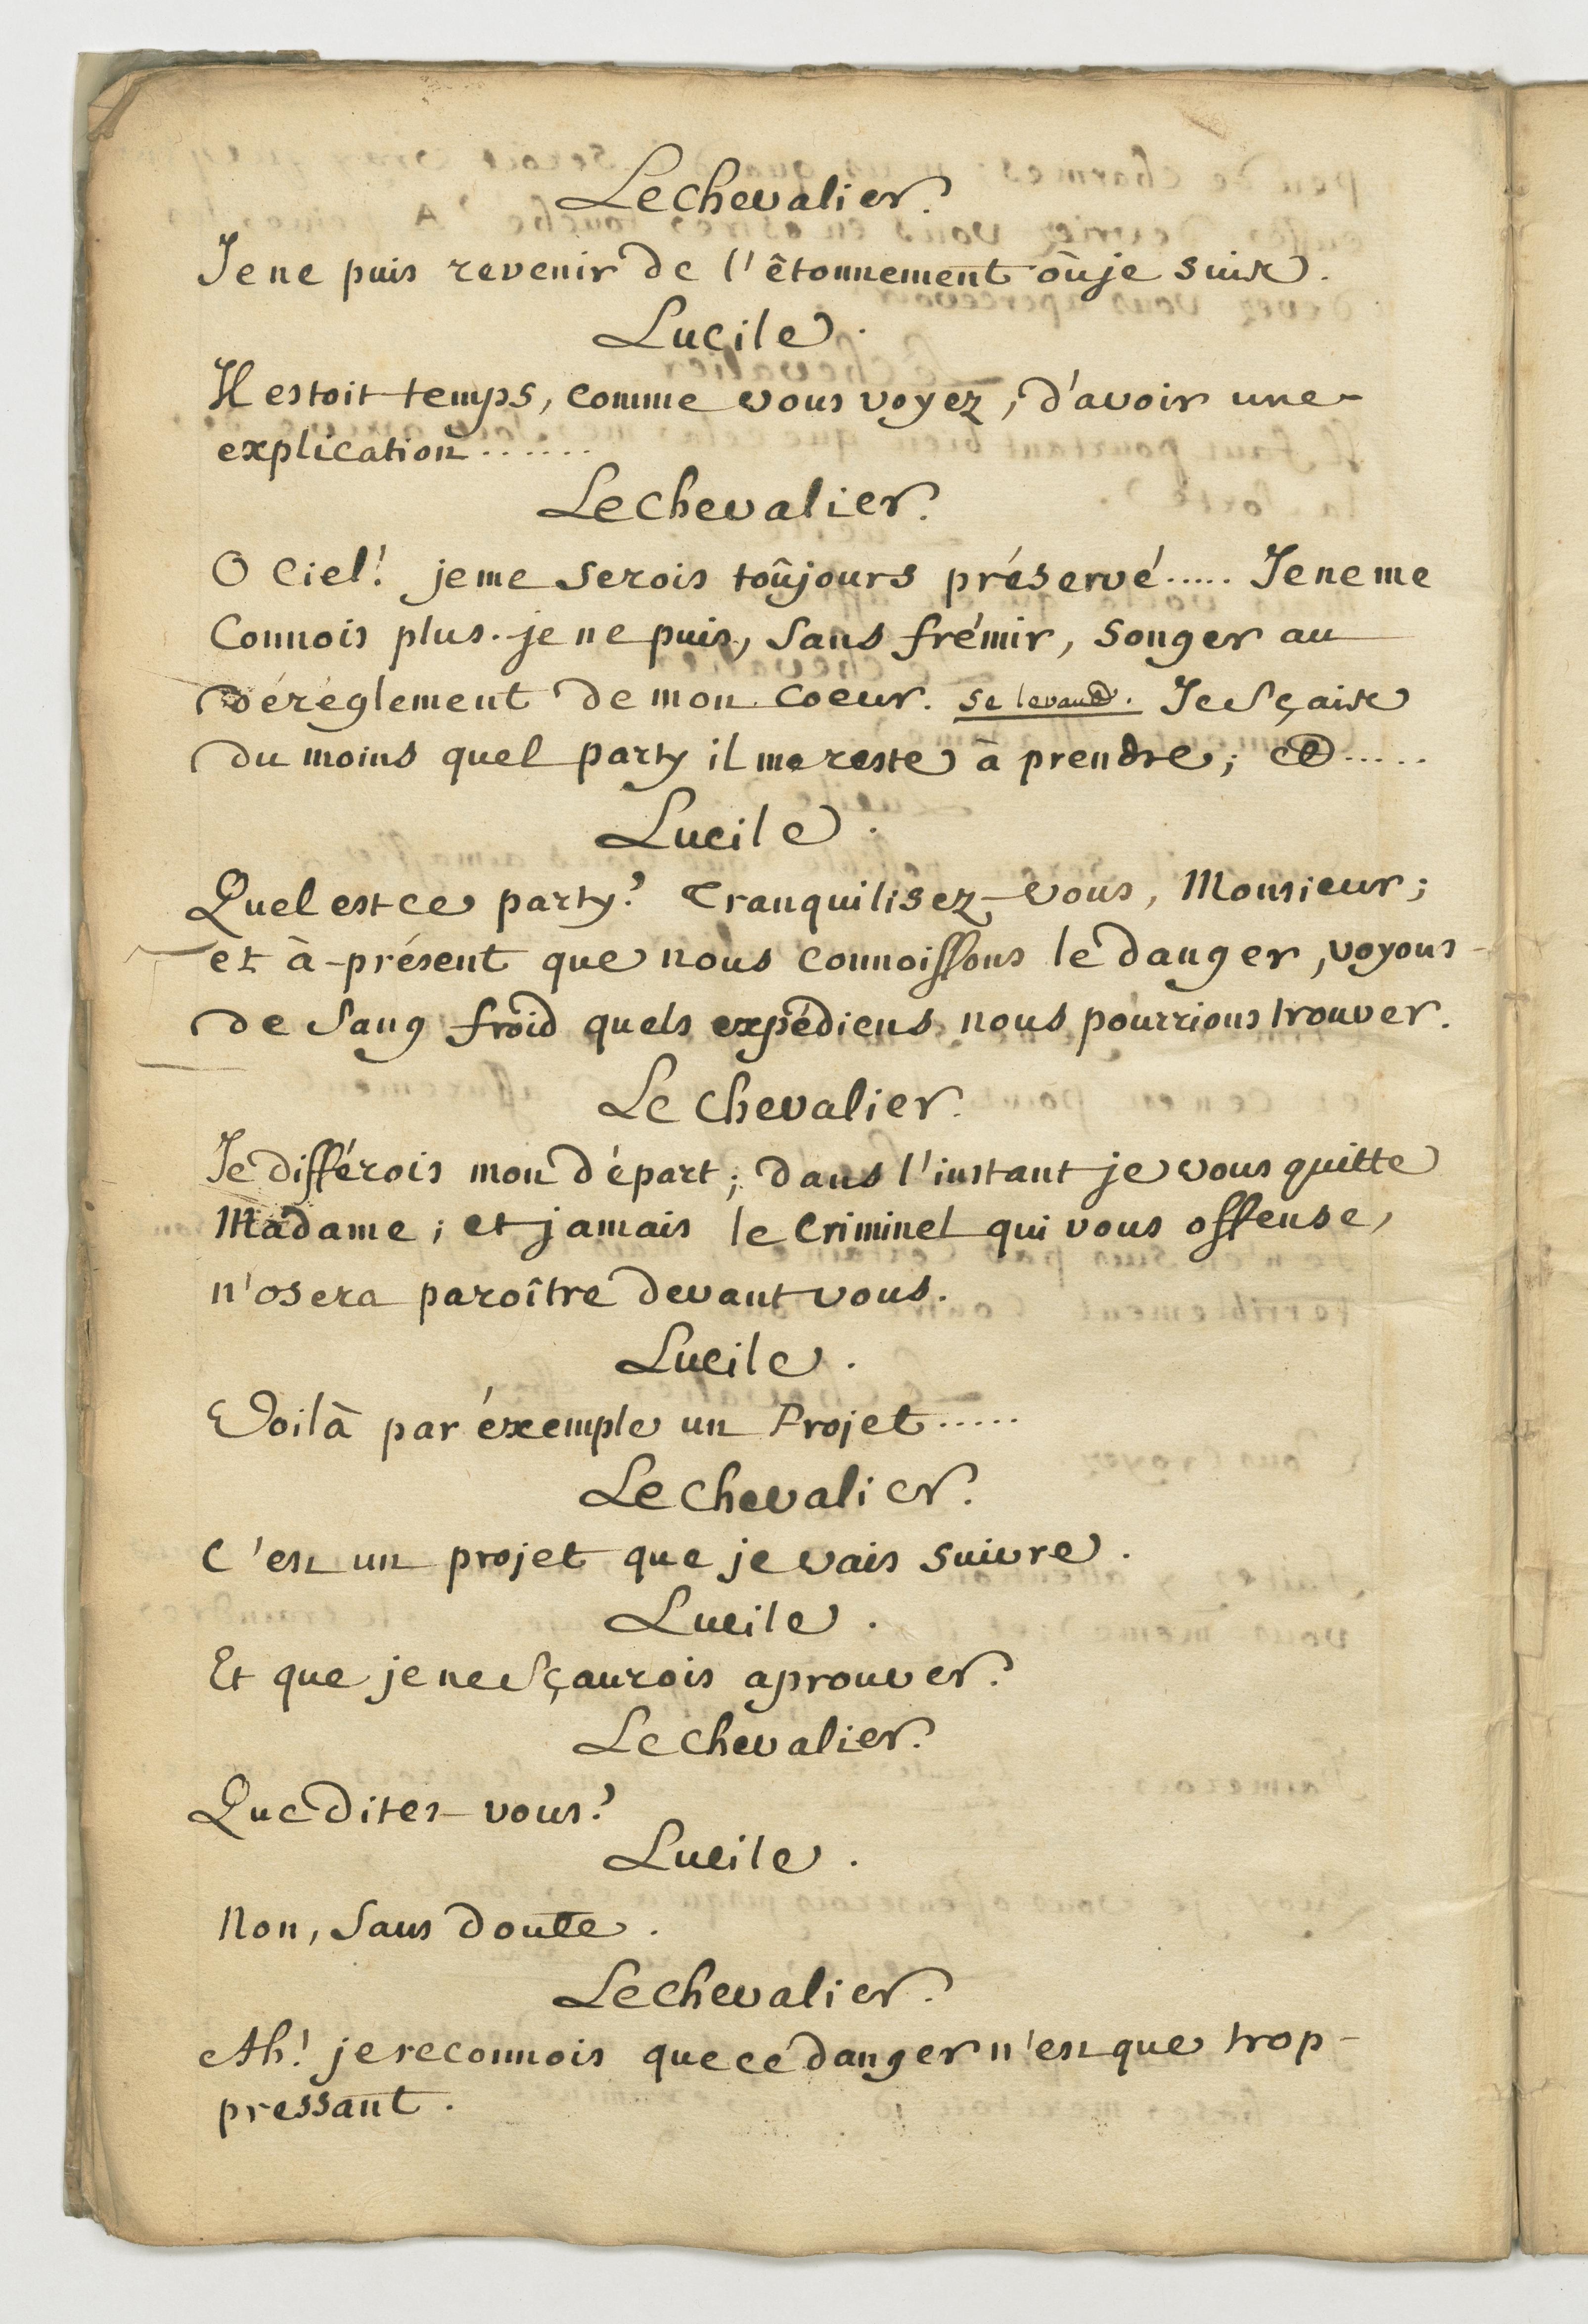 Le chevalier.
Je ne puis revenir de l'êtonnement où je suis.
Lucile.
Il estoit temps, comme vous voyez, d'avoir une
explication.......
Le chevalier.
O Ciel! je me serois toûjours préservé..... Je ne me
Connois plus. je ne puis, sans frémir, songer au
déréglement de mon coeur. se levant. Je sçais
du moins quel party il me reste à prendre; et.....
Lucile.
Quel est ce party? Tranquilisez-vous, Monsieur;
et à-présent que nous connoissons le danger, voyons
de sang froid quels expédiens nous pourrions trouver.
Le chevalier.
Je différois mon départ; dans l'instant je vous quitte
Madame; et jamais le Criminel qui vous offense,
n'osera paroître devant vous.
Lucile.
Voilà par éxemple un Projet.....
Le chevalier.
C'est un projet que je vais suivre.
Lucile.
Et que je ne sçaurois aprouver.
Le chevalier.
Que dites-vous?
Lucile.
Non, sans doute.
Le chevalier.
Ah! je reconnois que ce danger n'est que trop
pressant.